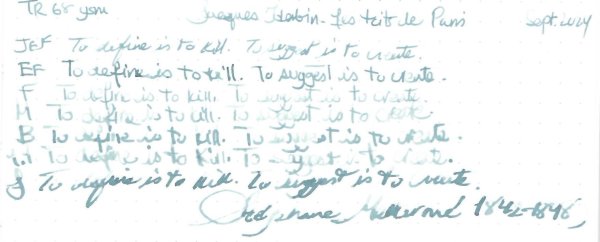 TR 68 gsm Jacques Herbin - Les toit de Paris Sept. 2024
JEF To define is to kill. To suggest is to create.
EF To define is to kill. To suggest is to create.
F To define is to kill. To suggest is to create.
M To define is to kill. To suggest is to create.
B To define is to kill. To suggest is to create.
1.1 To define is to kill. To suggest is to create.
J To define is to kill. To suggest is to create.
Stéphane Mallarmé 1842-1898